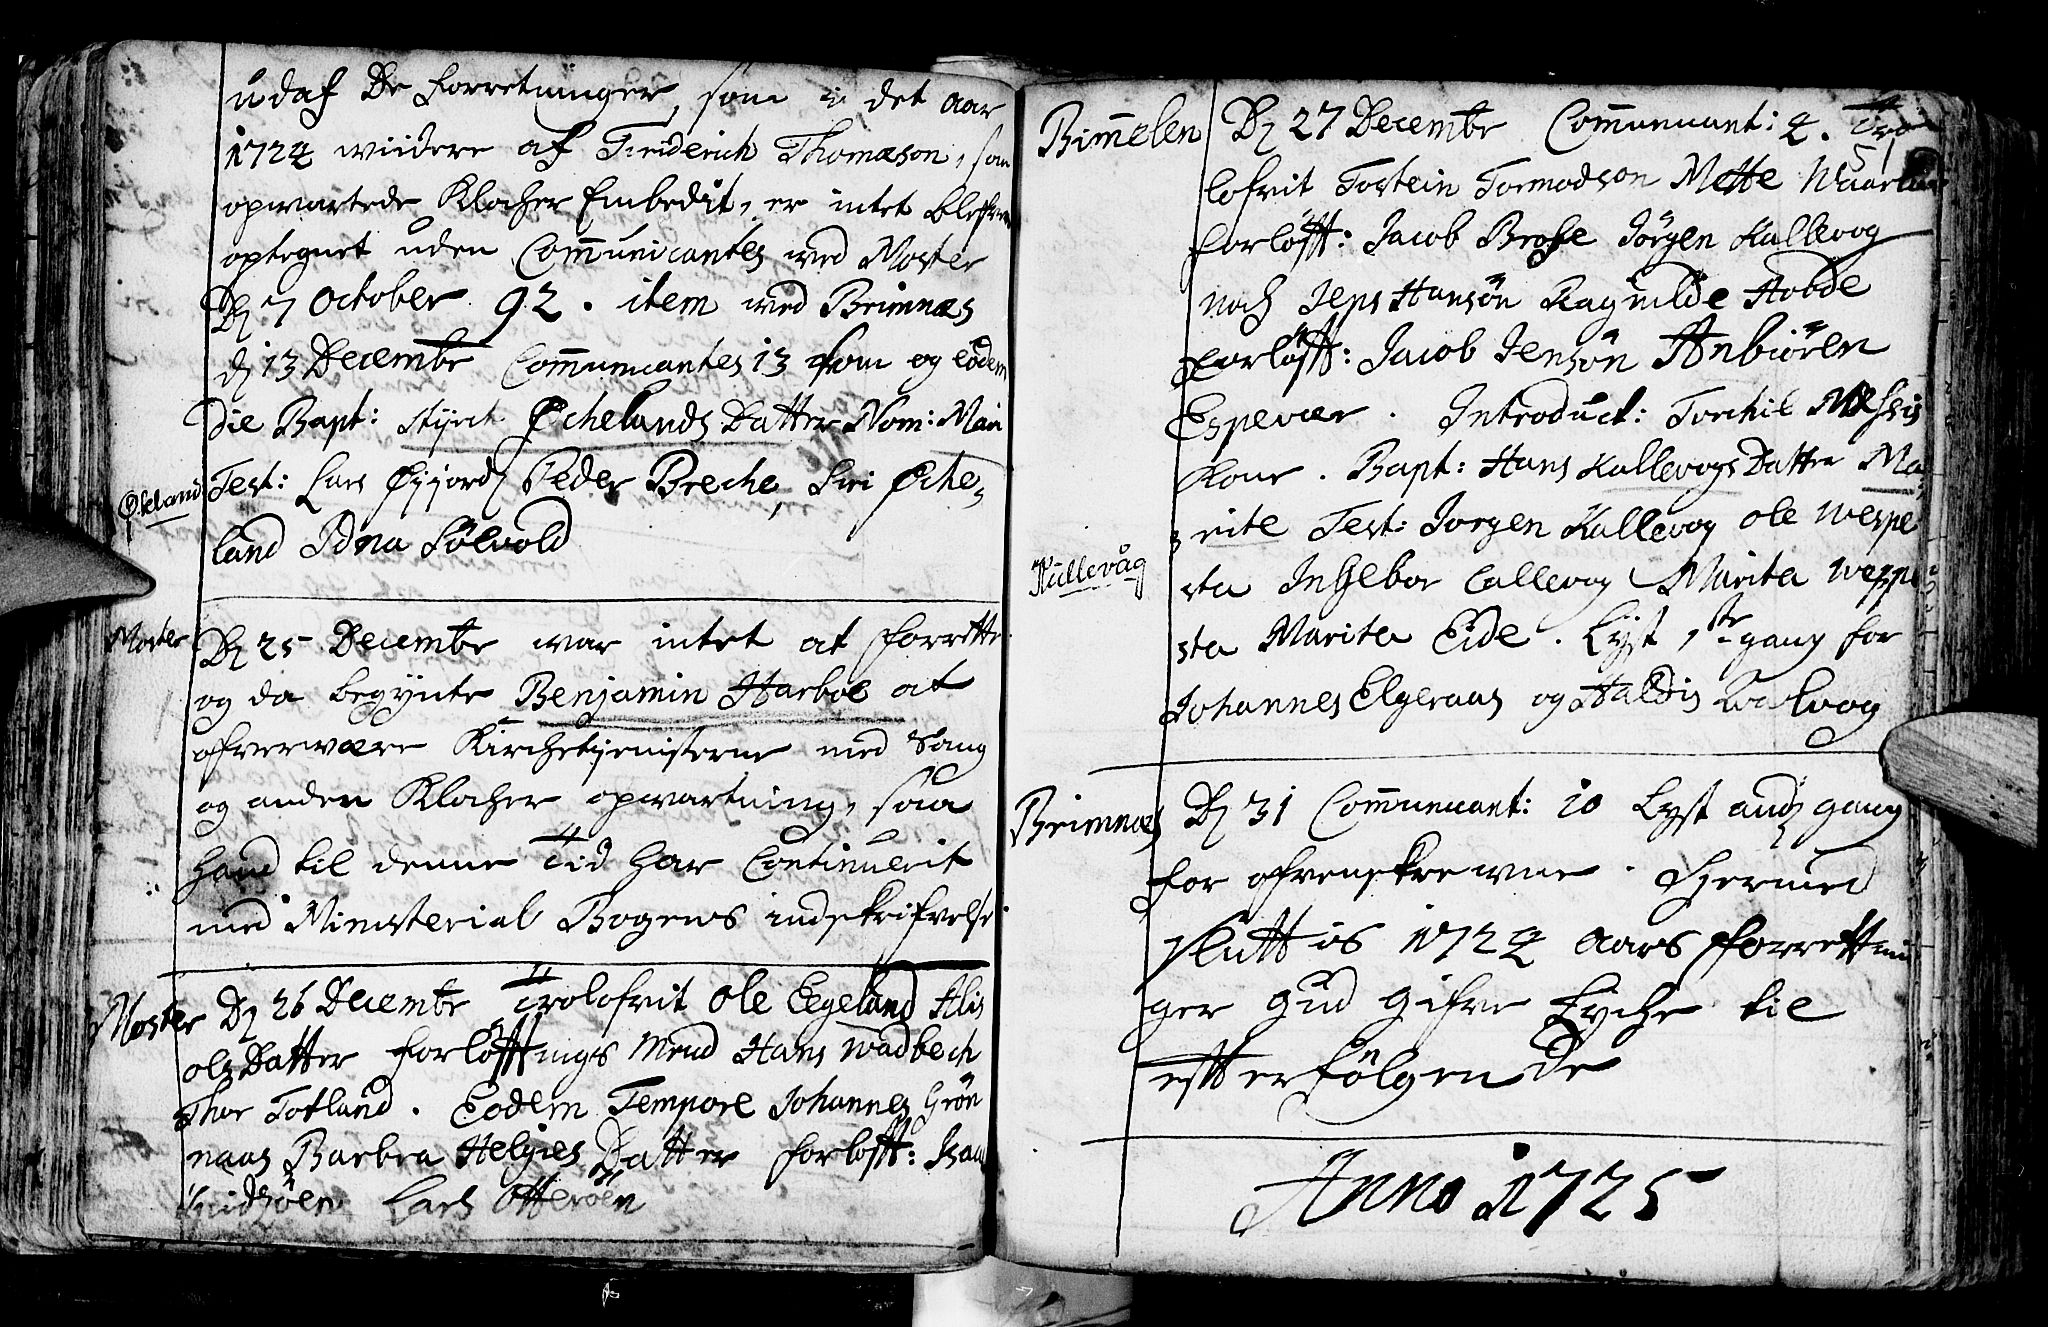 udaf De forretninger, som i det aar
1724 wiidere af Friderich Thomæson, som
opwartede Klocher Embedit, er intet blefven
optegnet uden Communicantes wed Moster
Dj 7 October 92. item wed Brimnæs
dj 13 Decembr Communicantes 13 som og eodem
Die Bapt: Styrch Øchelands Datter Nom: Mari
Økeland
Test: Lars Øyjord Peder Breche, Siri Øche-
land Edna Sølvold
Moster
Dj 25 Decembr war intet at forrette
og da begynte Benjamin Harboe at
ofverwære Kirchetjenisterne med Sang
og anden Klocher opwartning, saa
hand til denne Tid har Continuerit
med Ministerial Bogens indskrifvelse.
Moster
Dj 26 Decembr Trolofvit Ole Eegeland Alis
ols Datter forløfftnings Mend Hans Wadbech
Thor Totland. Eodem Tempore Johannes Grøn
naas Barbra Helgies Datter forløfft:
Lars Otterøen
51
Bimmelen
Dj 27 Decembr Communicant: 4. Tro
lofvit Tostein Tormodson Mette
forløfft: Jacob Brose Jørgen Kallevog
noch Jens Hansøn Ragnilde Hobde
forløfft: Jacob Jensøn Anbiören
Espevær. Introduct: Torchil
Kone. Bapt: Hans Kallevogs Datter Ma-
rite Test: Jørgen Kallevog ole Wespe
Kullevåg
sta Ingebor Callevog Marita Weppe
sta Marita Eide. Lyst 1ste gang for
Johannes Elgeraas og Haldis Kalvog
Brimnæs
Dj 31 Communicant: 10 Lyst andj gang
for ofvenskrewne. Hermed
Slutt is 1724 Aars forrettnin
ger Gud Gifve Lyche til
efterfølgende
Anno 1725